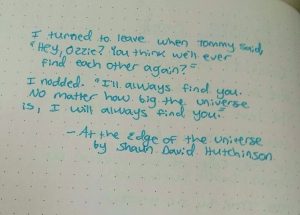 I turned to leave when Tommy said,
"Hey, Ozzie? You think we'll ever
find each other again?"
I nodded. "I'll always find you.
No matter how big the universe
is, I will always find you."
- At the Edge of the Universe
by Shaun David Hutchinson